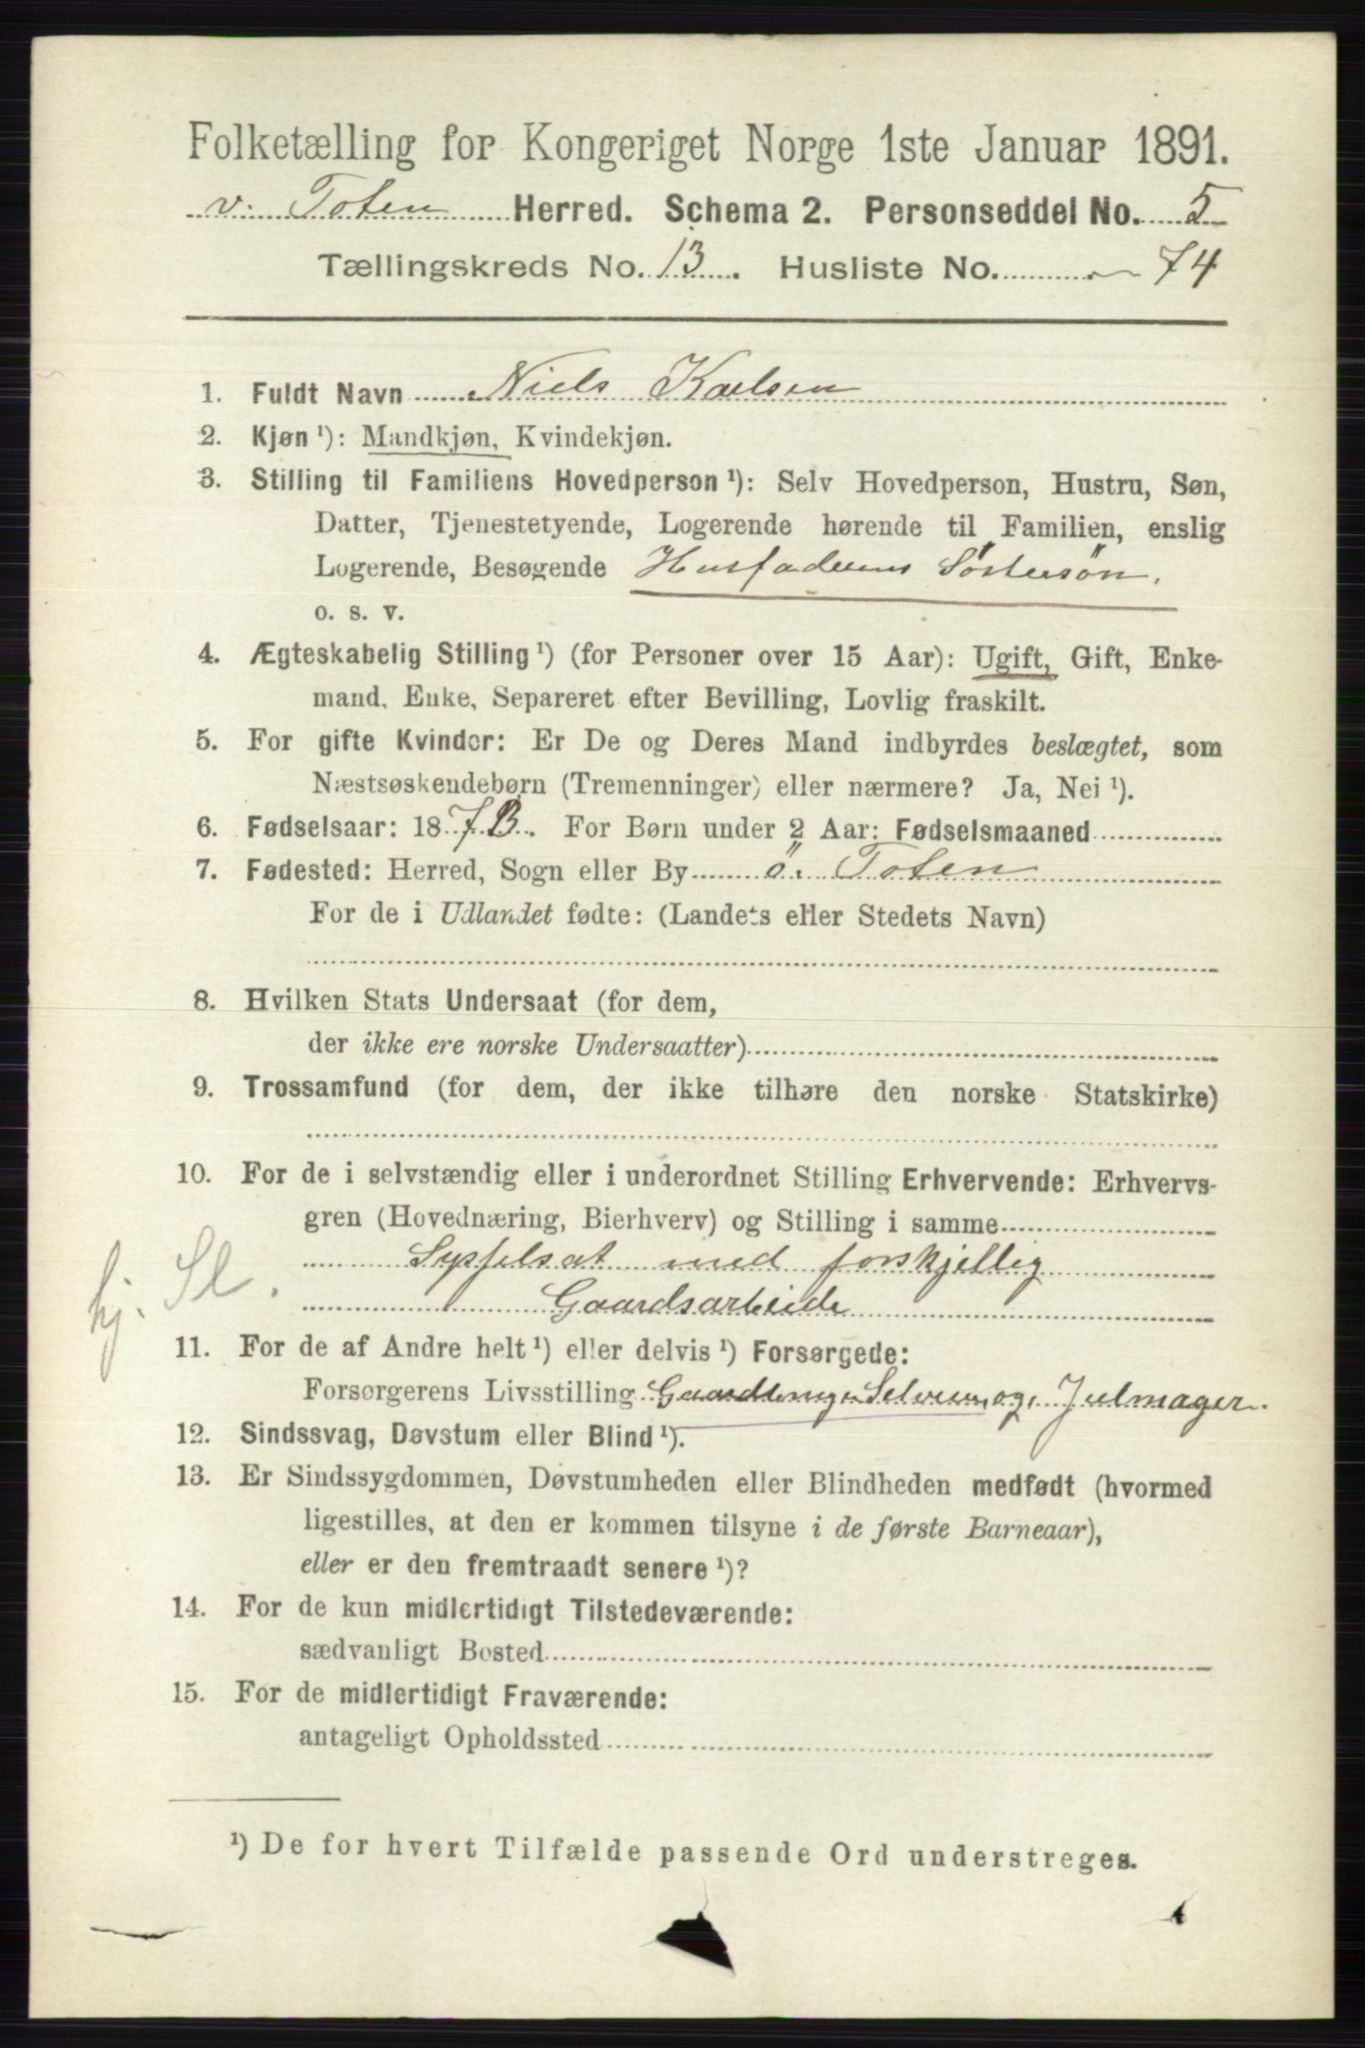 Folketælling for Kongeriget Norge 1ste Januar 1891.
v. Toten Herred. Schema 2. Personseddel No. 5
Tællingskreds No. 13. Husliste No. 74
1. Fuldt Navn Niels Karlsen
2. Kjøn ¹): Mandkjøn, Kvindekjøn.
3. Stilling til Familiens Hovedperson ¹): Selv Hovedperson, Hustru, Søn,
Datter, Tjenestetyende, Logerende hørende til Familien, enslig
Logerende, Besøgende Husfaderens Söstersön.
o. s. v.
4. Ægteskabelig Stilling ¹) (for Personer over 15 Aar): Ugift, Gift, Enke-
mand, Enke, Separeret efter Bevilling, Lovlig fraskilt.
5. For gifte Kvinder: Er De og Deres Mand indbyrdes beslægtet, som
Næstsøskendebørn (Tremenninger) eller nærmere? Ja, Nei ¹).
6. Fødselsaar: 1873. For Børn under 2 Aar: Fødselsmaaned
7. Fødested: Herred, Sogn eller By ö. Toten
For de i Udlandet fødte: (Landets eller Stedets Navn)
8. Hvilken Stats Undersaat (for dem,
der ikke ere norske Undersaatter)
9. Trossamfund (for dem, der ikke tilhøre den norske Statskirke)
10. For de i selvstændig eller i underordnet Stilling Erhvervende: Erhvervs-
gren (Hovednæring, Bierhverv) og Stilling i samme
Sysselsat med forskjellig
hj. Sl.
Gaardsarbeide
11. For de af Andre helt ¹) eller delvis ¹) Forsørgede:
Forsørgerens Livsstilling Selveier og Julmager.
12. Sindssvag, Døvstum eller Blind ¹).
13. Er Sindssygdommen, Døvstumheden eller Blindheden medfødt (hvormed
ligestilles, at den er kommen tilsyne i de første Barneaar),
eller er den fremtraadt senere ¹)?
14. For de kun midlertidigt Tilstedeværende:
sædvanligt Bosted
15. For de midlertidigt Fraværende:
antageligt Opholdssted
¹) De for hvert Tilfælde passende Ord understreges.